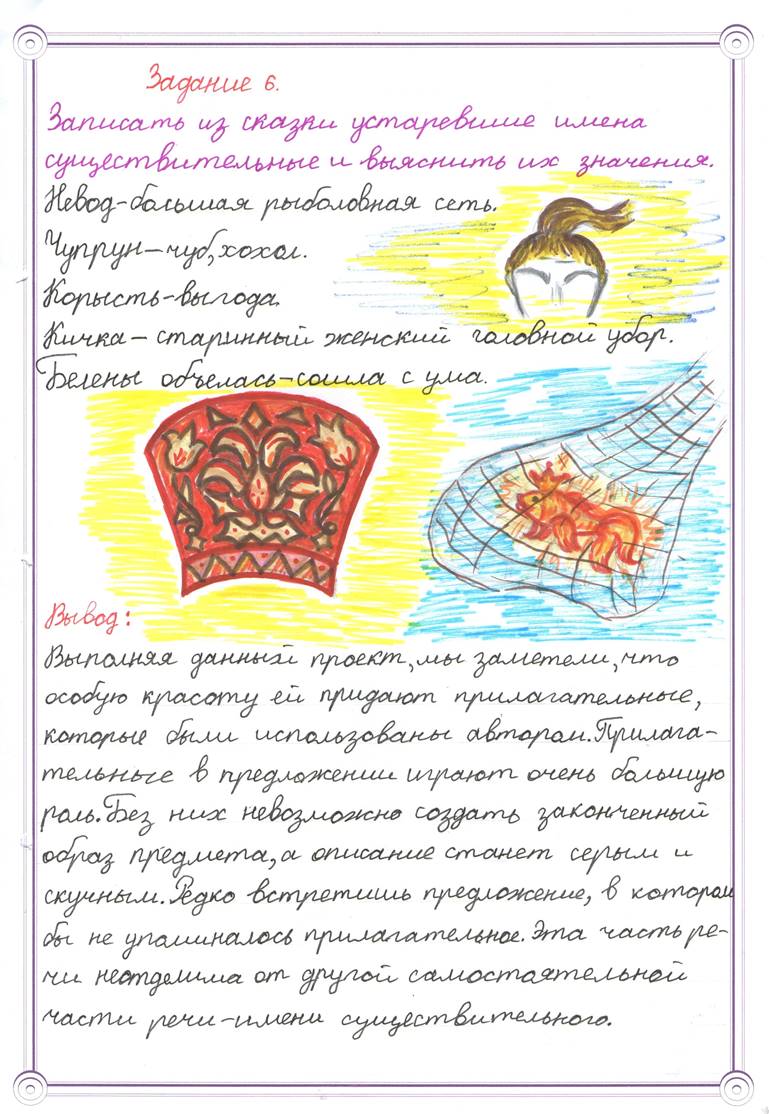 Задание 6.
Записать из сказки устаревшие имена
существительные и выяснить их значения.
Невод-большая рыболовная сеть.
Чупрун-чуб, хохол.
Корысть-выгода.
Кичка-старинный женский головной убор.
Белены объелась-сошла с ума.
Вывод:
Выполняя данный проект, мы заметели, что
особую красоту ей придают прилагательные,
которые были использованы автором. Прилага-
тельные в предложении играют очень большую
роль. Без них невозможно создать законченный
образ предмета, а описание станет серым и
скучным. Редко встретишь предложение, в котором
бы не упоминалось прилагательное. Эта часть ре-
чи неотделима от другой самостоятельной
части речи-имени существительного.